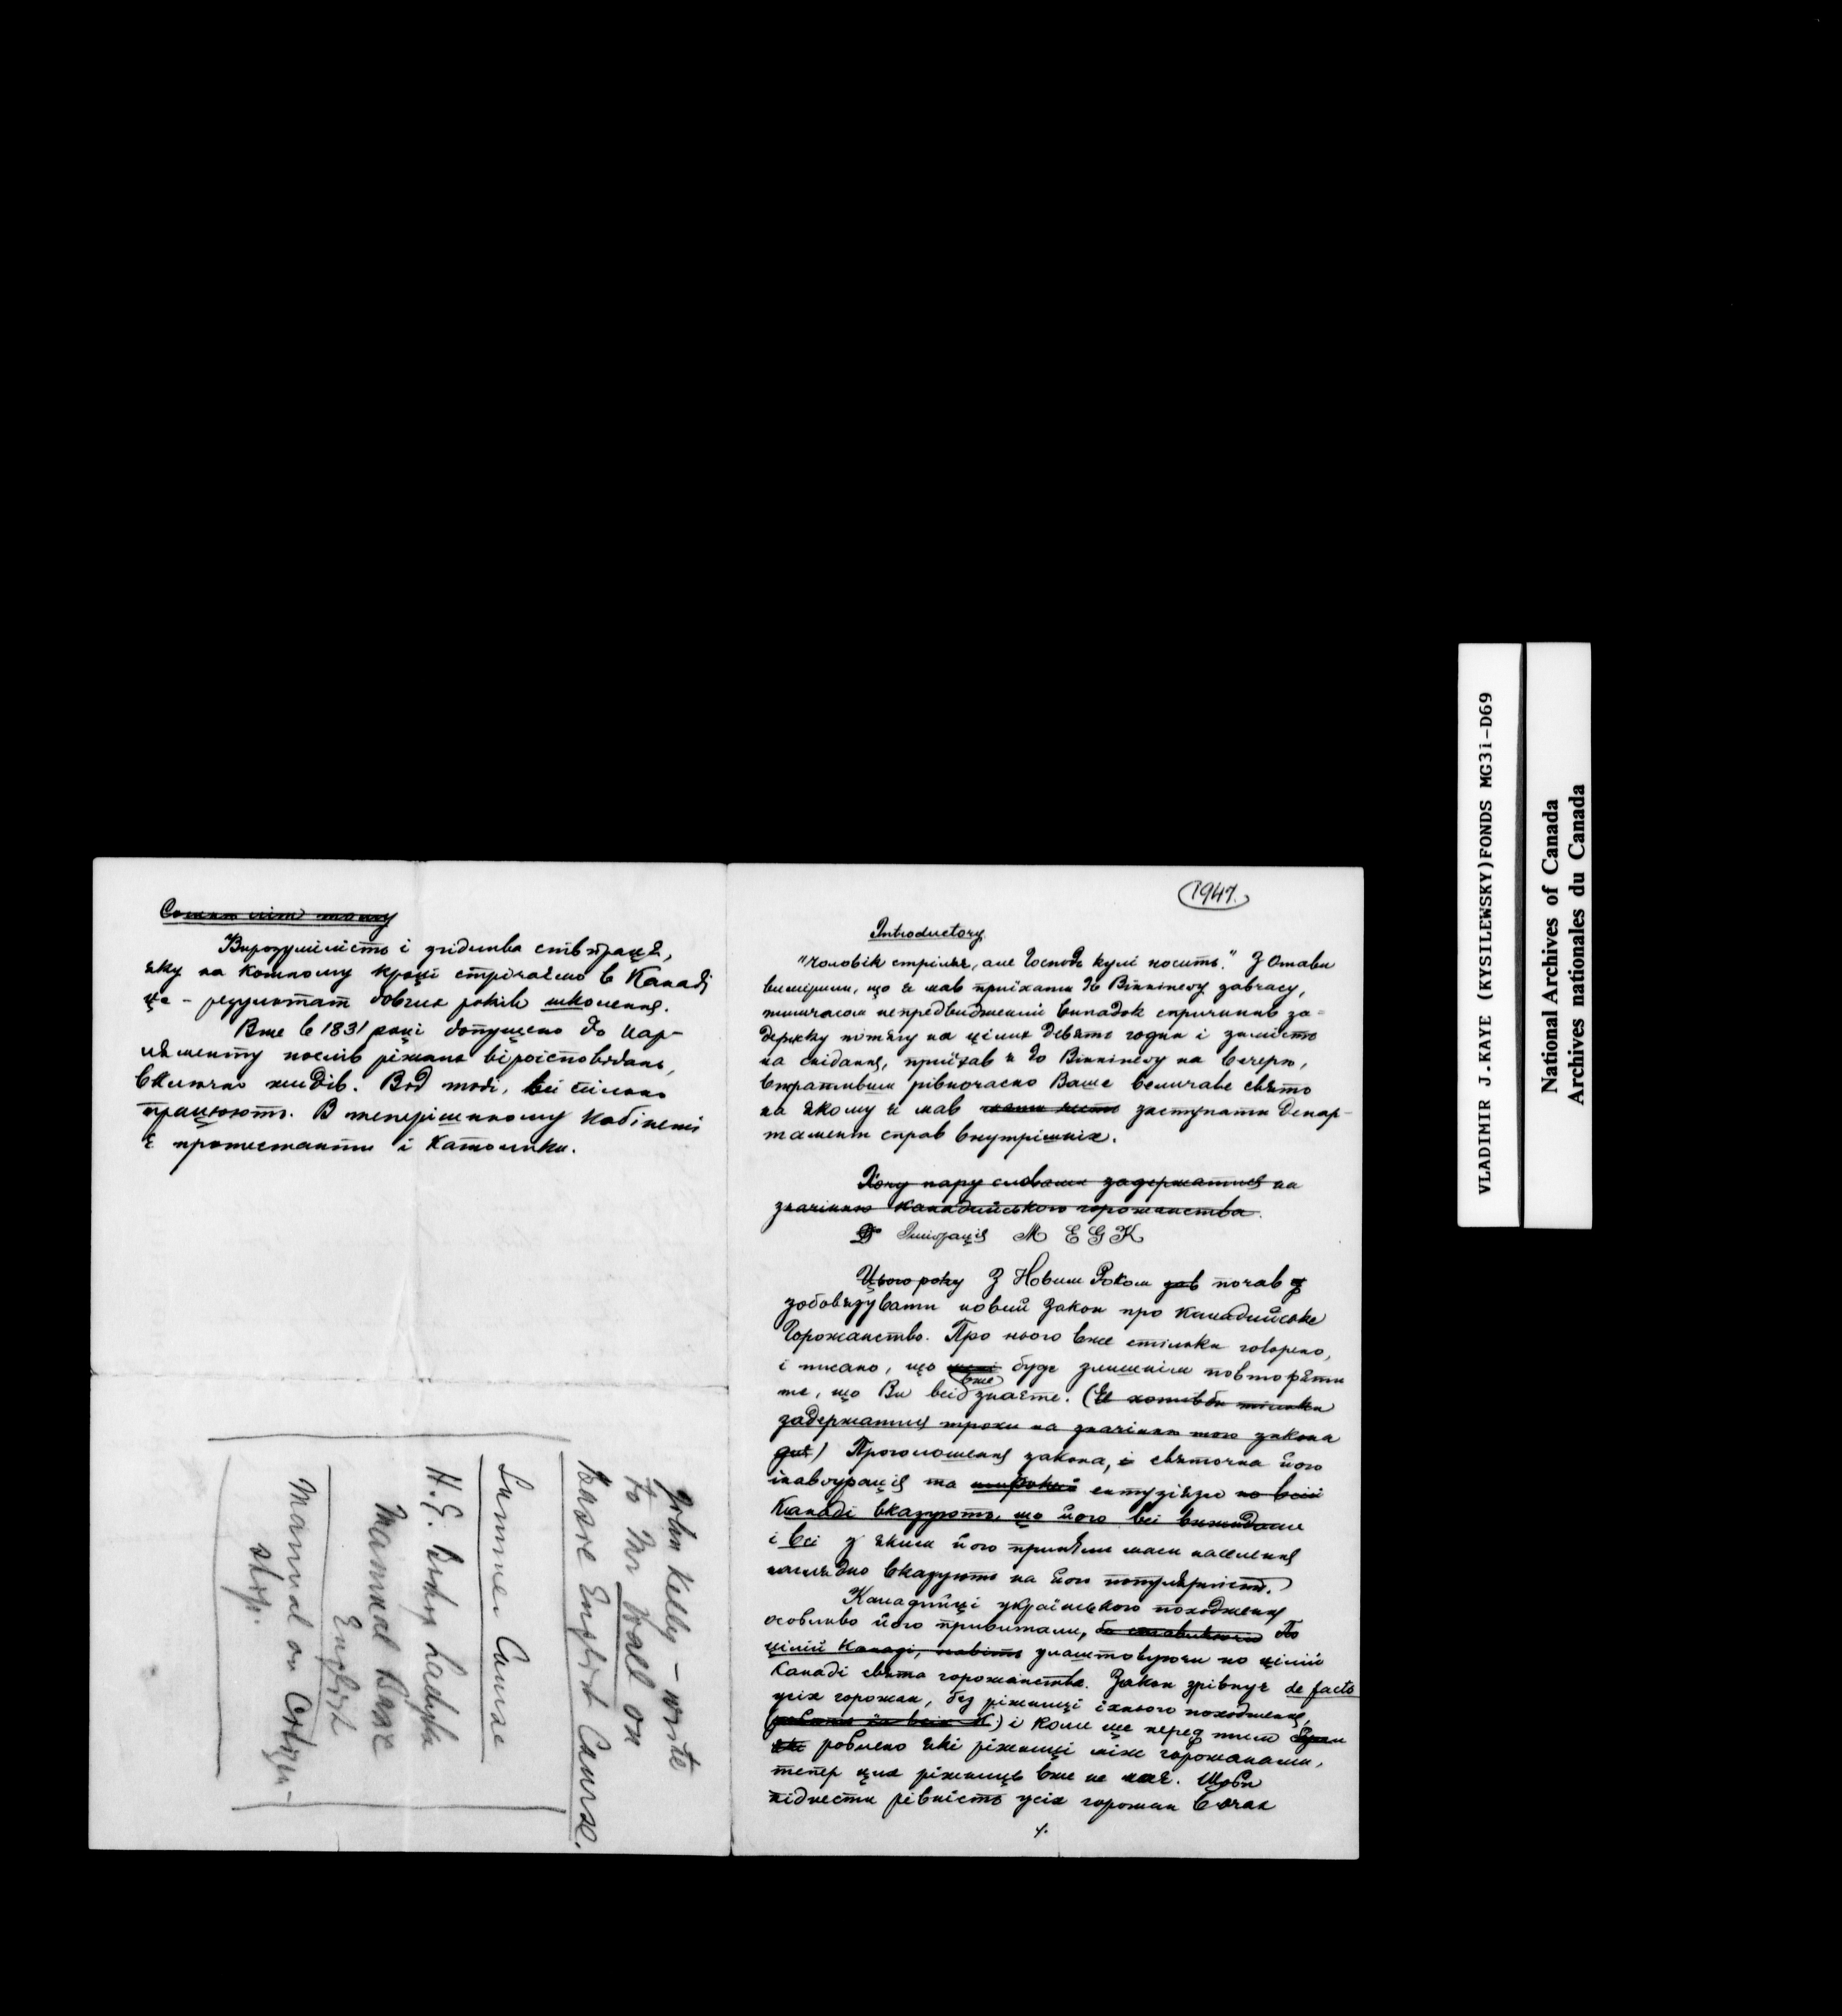 Вирозумілість і згідлива співпраця,
яку на кожному кроці стрічаємо в Канаді
це - резулютат довгих років школення.
Вже в 1831 році допущено до пар-
ляменту послів ріжних віроісповідань,
включно жидів. Від тоді, всі спільно
працюють. В теперішньому кабінеті
є протестанти і католики.
John Kelly - wrote
to Mr Wall on
Basic English Course.
Summer Course
H.G. Ladyka
Manual Basic
English
Manual on Citizen-
ship.
1947.
Introductory
"Чоловік стріляє, але Господь кулі носить." З Отави
вимірили, що я мав приїхати до Вінніпегу завчасу,
тимчасом непредвиджений випадок спричинив за-
держку потягу на цілих девять годин і замість
на снідання, приїхав я до Вінніпегу на вечерю,
втративши рівночасно Ваше величаве свято
на якому я мав заступати Депар-
тамент справ внутрішніх.
Хочу пару словами задержатися на
значінню канадийського горожанства.
Іміґрація М E G K
Цього року З Новим Роком почав
зобовязувати новий закон про Канадийське
Горожанство. Про нього вже стільки говорено,
і писано, що буде злишнім повторяти
те, що Ви всі вже знаєте. (Я хотівби тільки
задержатися трохи на значінню того закона
) Проголошення закона, і святочна його
інавґурація та широкий ентузіязм по всій
Канаді вказують, що його всі вижидали
і всі з яким його приняли маси населення
наглядно вказують на його популярність.
Канадийці українського походження
особливо його привитали, По
цілій Канаді, навіть улаштовуючи по цілій
Канаді свята горожанства. Закон зрівнує de facto
усіх горожан, без ріжниці їхнього походження,
і коли ще перед тим
роблено які ріжниці між горожанами,
тепер цих ріжниць вже не має. Щоби
піднести рівність усіх горожан в очах